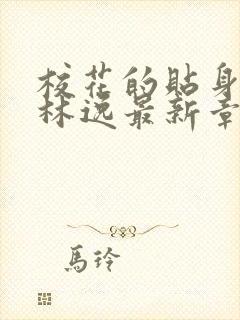 校花的貼身
林逸最新章
馬玲